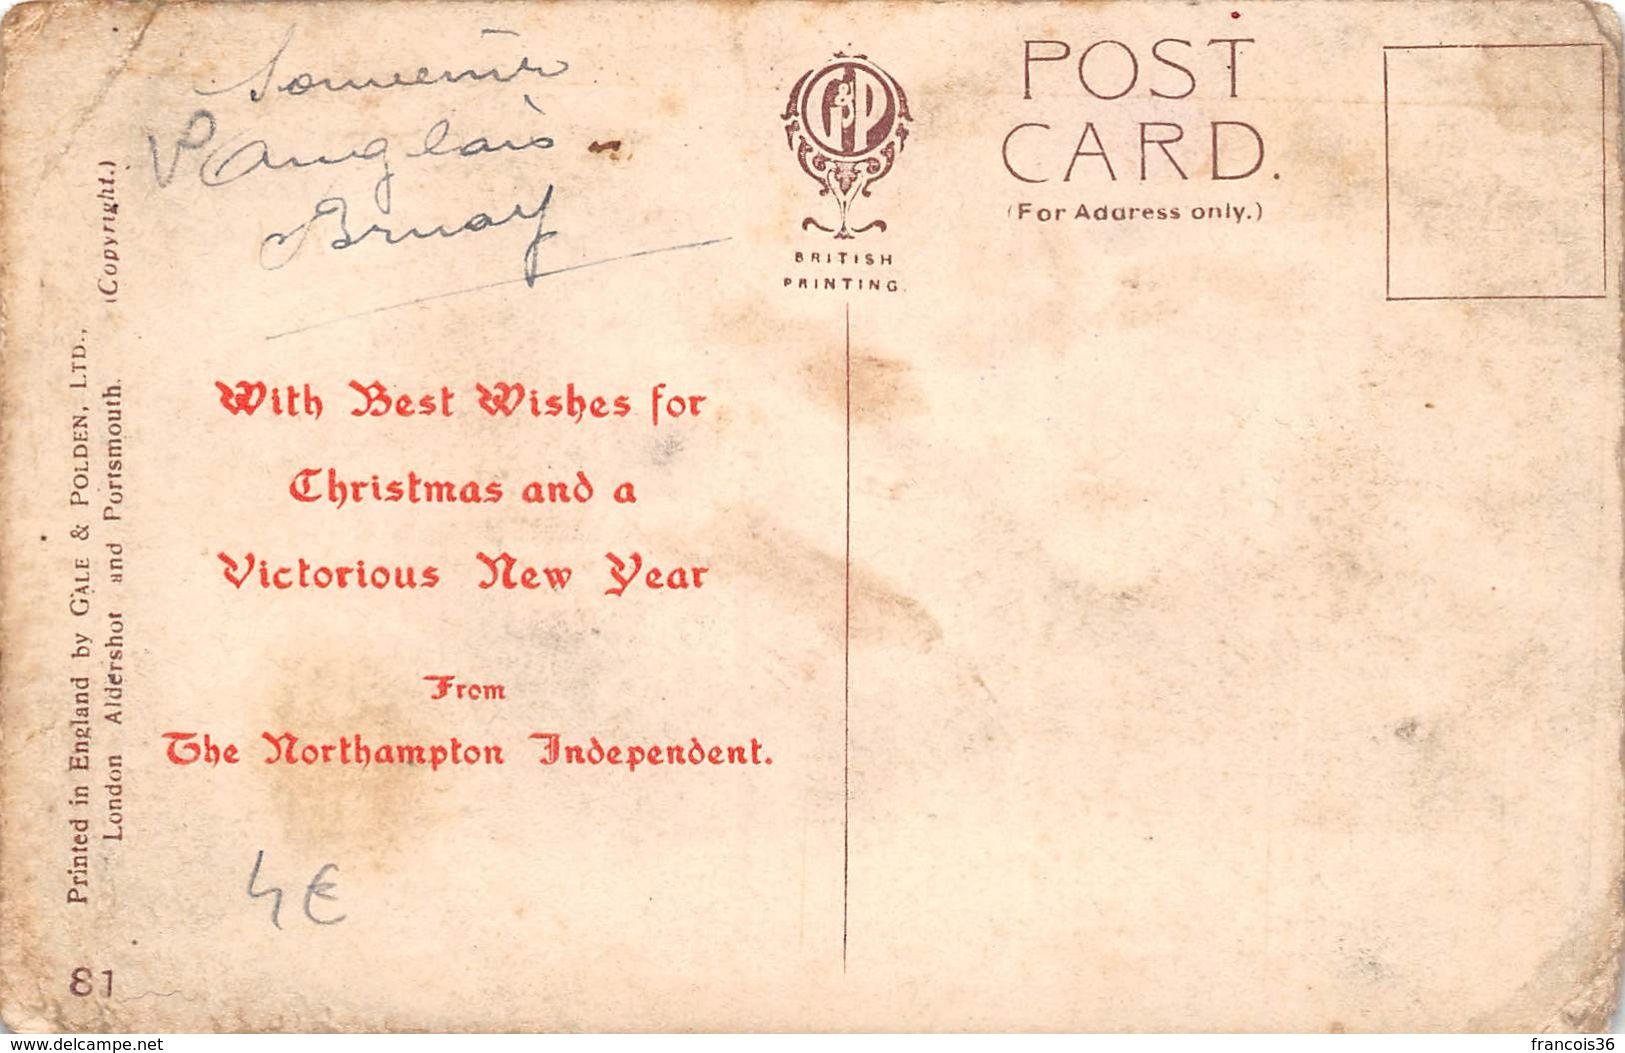 Souvenir
anglais
Bruay
G&P
BRITISH
PRINTING.
POST
CARD.
(For Address only.)
Printed in England by GALE & POLDEN, LTD.,
London Aldershot and Portsmouth. (Copyright.)
With Best Wishes for
Christmas and a
Victorious New Year
From
The Northampton Independent.
4€
81
www.delcampe.net
francois36